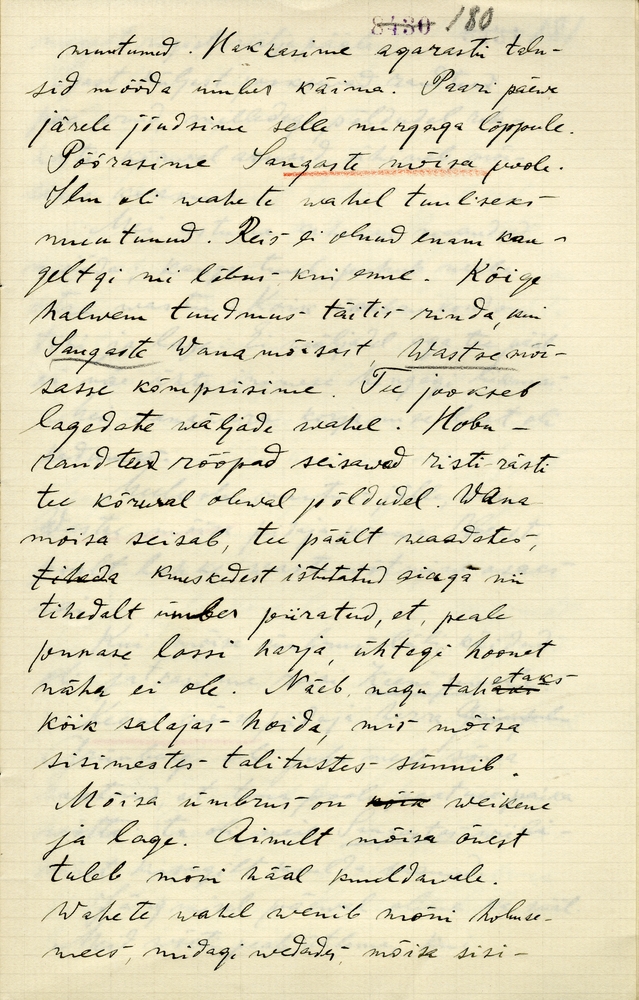 8430 180
muutunud. Hakkasime agarasti talu-
sid mööda ümber käima. Paari päewa
järele jõudsime selle nurgaga lõppule.
Pöörasime Sangaste mõisa poole.
Ilm oli wahete wahel tuuliseks
muutunud. Reis ei olnud enam kau-
geltgi nii lõbus kui enne. Kõige
halwem tundmus täitis rinda, kui
Sangaste Wana mõisast, Wastsemõi-
sasse kõmpisime. Tee jookseb
lagedate wäljade wahel. Hobu-
raudteed rööpad seisawad risti-rästi
tee kõrwal olewal põldudel. Wana
mõisa seisab, tee päält waadates,
tiheda kuuskedest istutatud aiaga nii
tihedalt ümber piiratud, et, peale
punase lossi harja, ühtegi hoonet
näha ei ole. Näeb, nagu tahetaks
kõik salajas hoida, mis mõisa
sisimestes talitustes sünnib.
Mõisa ümbrus on kõik weikene
ja lage. Ainult mõisa õuest
tuleb mõni hääl kuuldawale.
Wahete wahel wenib mõni hobuse-
mees, midagi wedades, mõisa sisi-